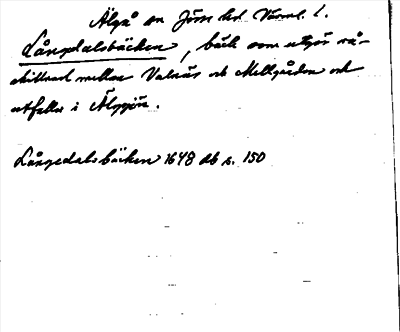 Älgå sn Jösse hd Värml. l.
Långdalsbäcken, bäck som utgör rå-
skillnad mellan Valnäs och Mellgården och
utfaller i Älgsjön.
Långedalsbäcken 1648 db s. 150